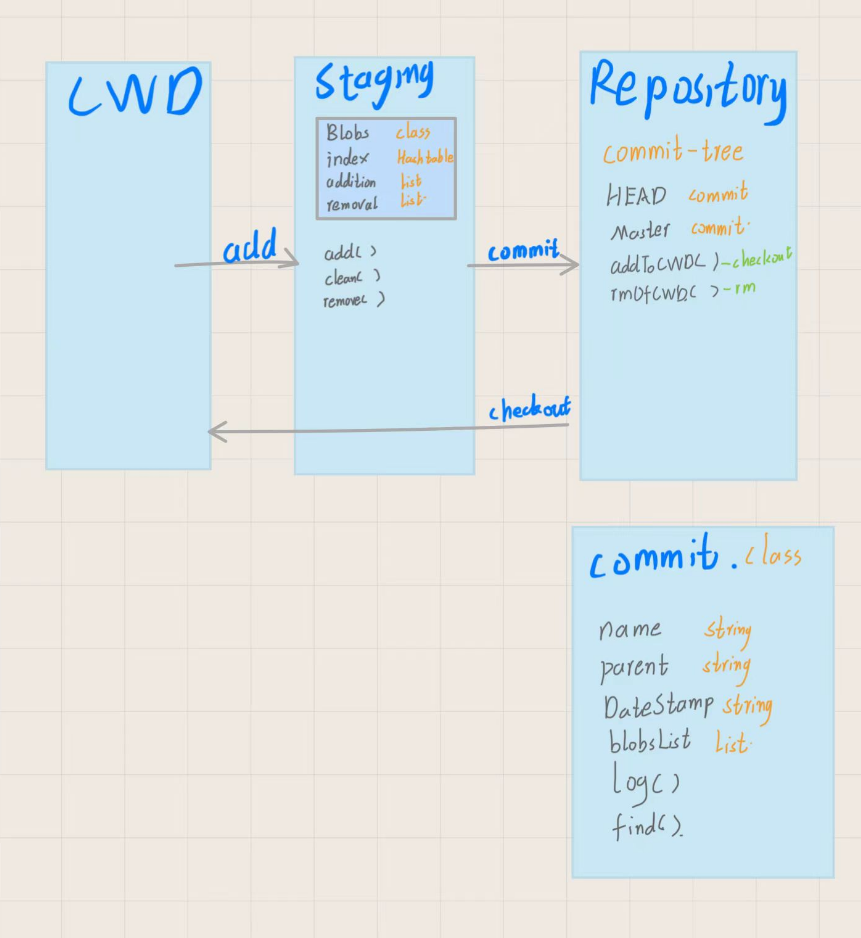 CWD
Staging
Blobs class
index Hachtable
addition list
removal list.
add( )
clean( )
remove( )
add
commit
checkout
Repository
commit-tree
HEAD commit
Master commit.
addToCWD( ) -checkout
rmOfCWD( ) -rm
commit.class
name string
parent string
DateStamp string
blobsList List.
log( )
find( ).